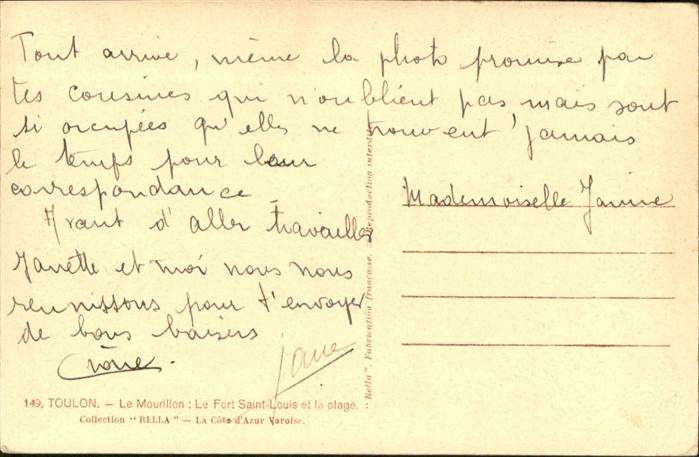 Tout arrive, même la photo promise par
tes cousines qui n'oublient pas mais sont
si occupées qu'elles ne trouvent jamais
le temps pour leur
correspondance
Avant d'aller travailler
Janette et moi nous nous
reunissons pour t'envoyer
de bons baisers
Mademoiselle Janine
149. TOULON. — Le Mourillon : Le Fort Saint-Louis et la plage.
Collection "RELLA" — La Côte d'Azur Varoise.
"Rella" Fabrication française. - Reproduction interdite